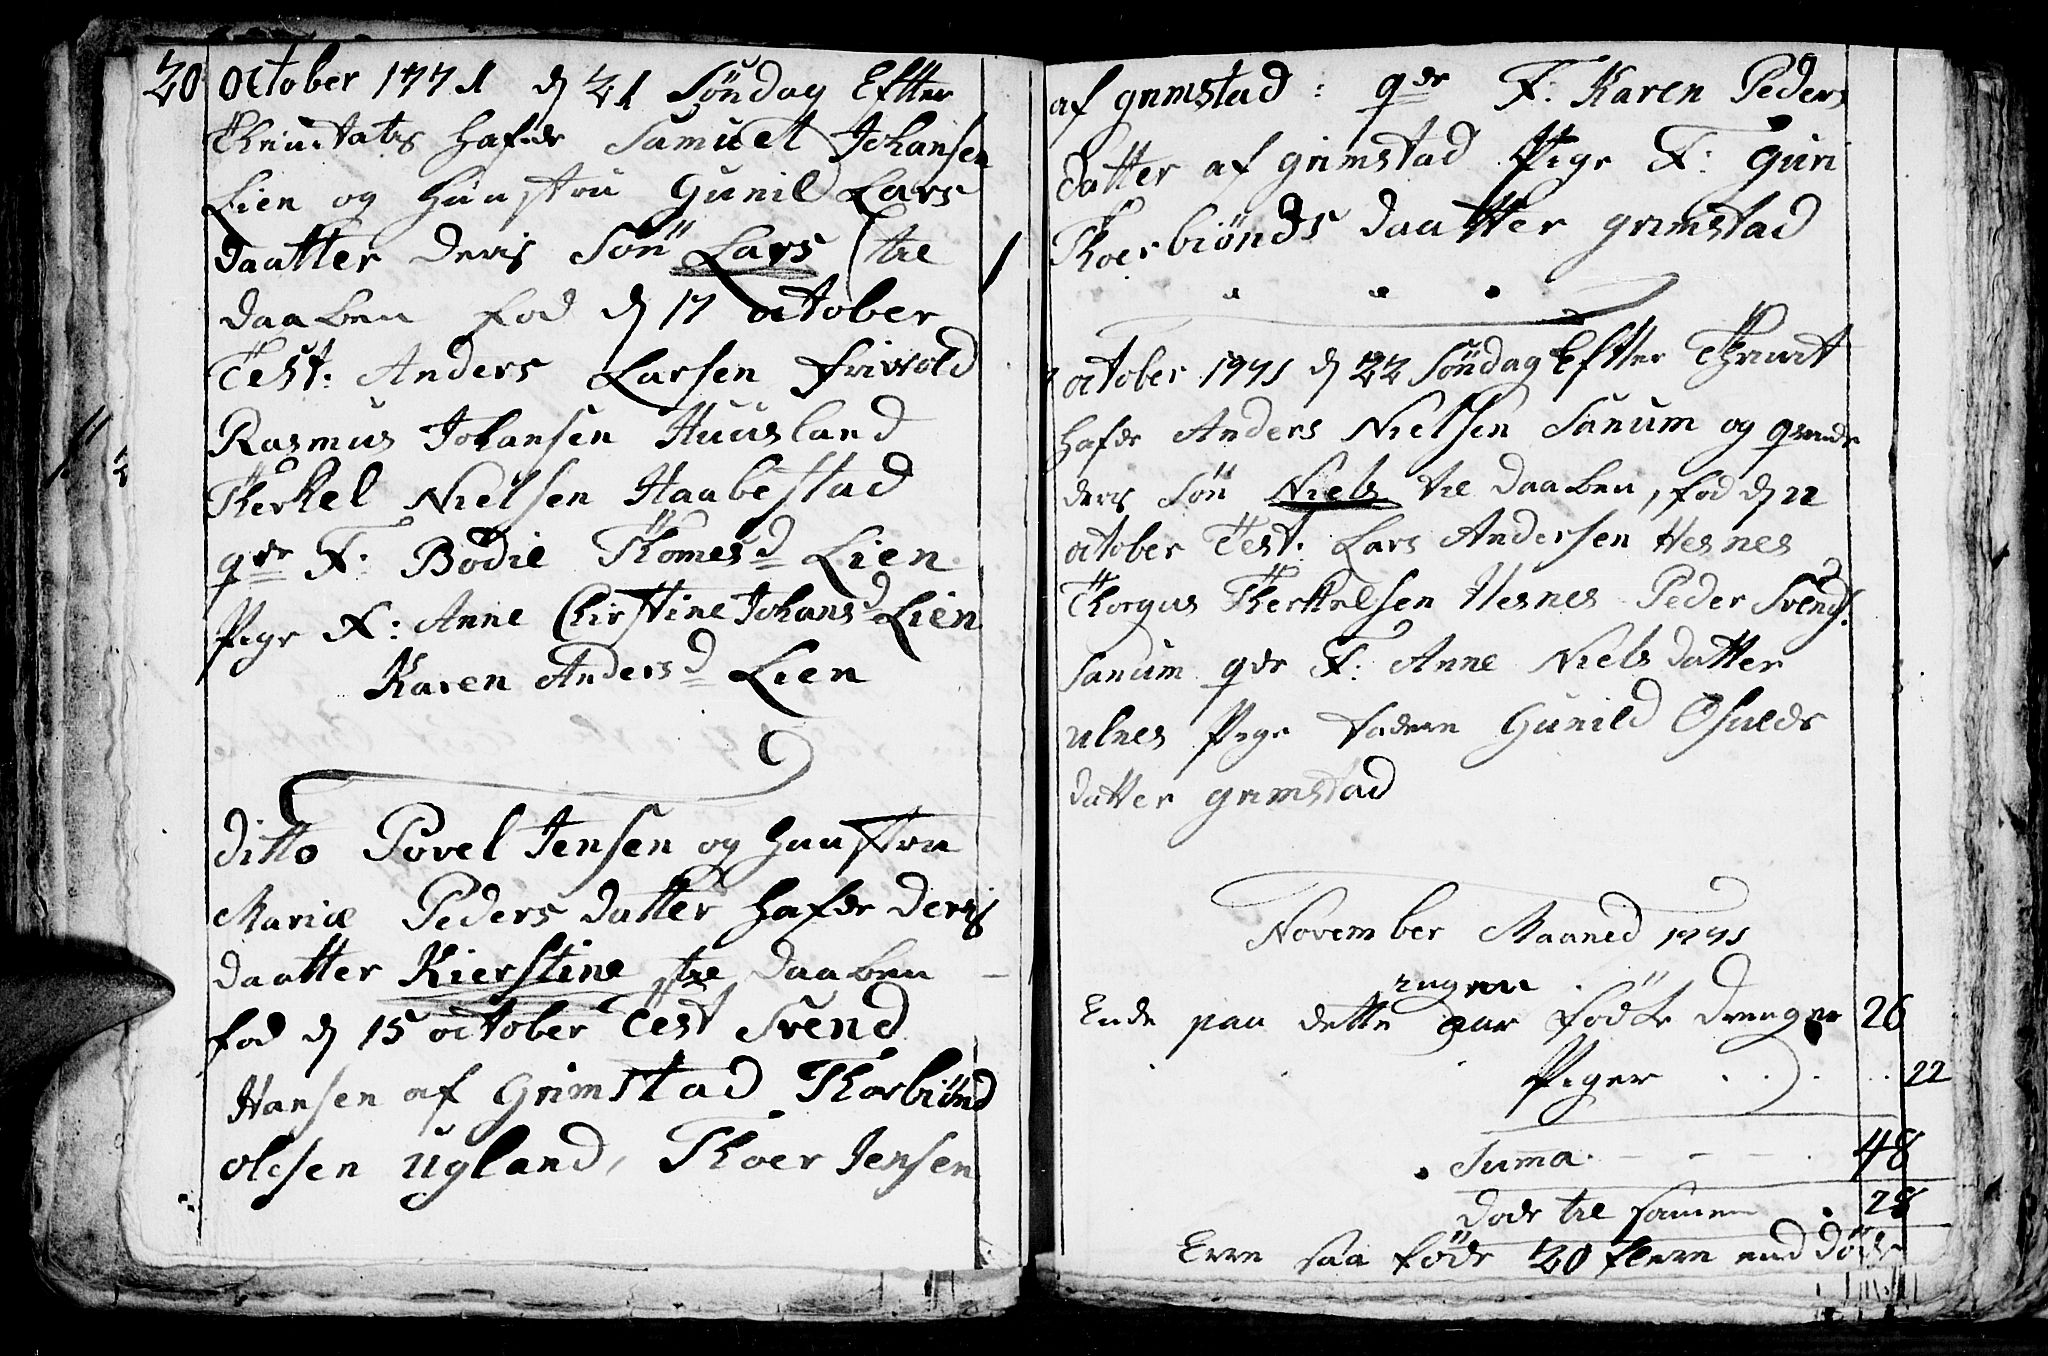 20 october 1771 d 21 Söndag Efter
Thrinitatis hafde Samuel Johansen
Lien og Hustru Gunil Lars
daatter deris Sön Lars til 1
daaben fød d 17 october
Test: Anders Larsen Frivold
Rasmus Johansen Huusland
Therkel Nielsen Haabestad
qde F: Bodil Thomesd Lien
Pige F: Anne Chirstine Johansd Lien
Karen Andersd Lien
ditto Povel Jensen og Hustru
Mariæ Peders datter hafde deris
daatter Kierstine til daaben —
fød d 15 october Test Svend
Hansen af Grimstad Thorbiönd
olesen Ugland, Thoer Jensen
af grimstad: qde F: Karen Peders
datter af grimstad Pige F: Guri
Thoerbiönds daatter grimstad
october 1771 d 22 Söndag Efter Thrinit
hafde Anders Nielsen Sanum og qvinde
deris Sön Niels til daaben, fød d 22
october Test: Lars Andersen Vesnes
Thorgus Therkelsen Vesnes Peder Svends.
Sanum qde F: Anne Niels datter
ulnes Pige Fadere Gunild Osulds
datter grimstad
November Maaned 1771
ingen
Ende paa dette aar födte drenger 26
Piger . . . 22
Suma. — — — 48
döde til samen . 28
Erre saa föde 20 flere end döde